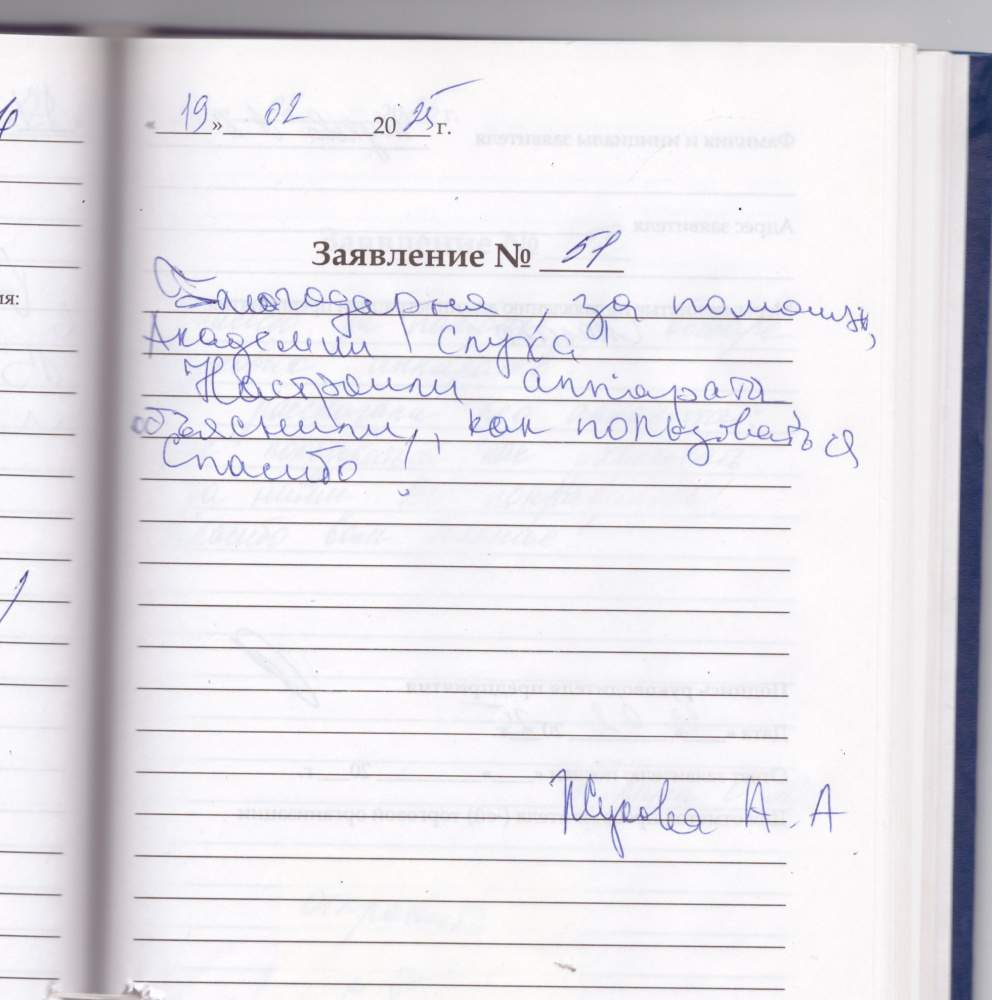 «19» 02 2025 г.
ия:
Заявление № 51
Благодарна, за помощь,
Академии "Слуха"
Настроили аппараты
объяснили, как пользоваться
Спасибо!
Жукова А. А